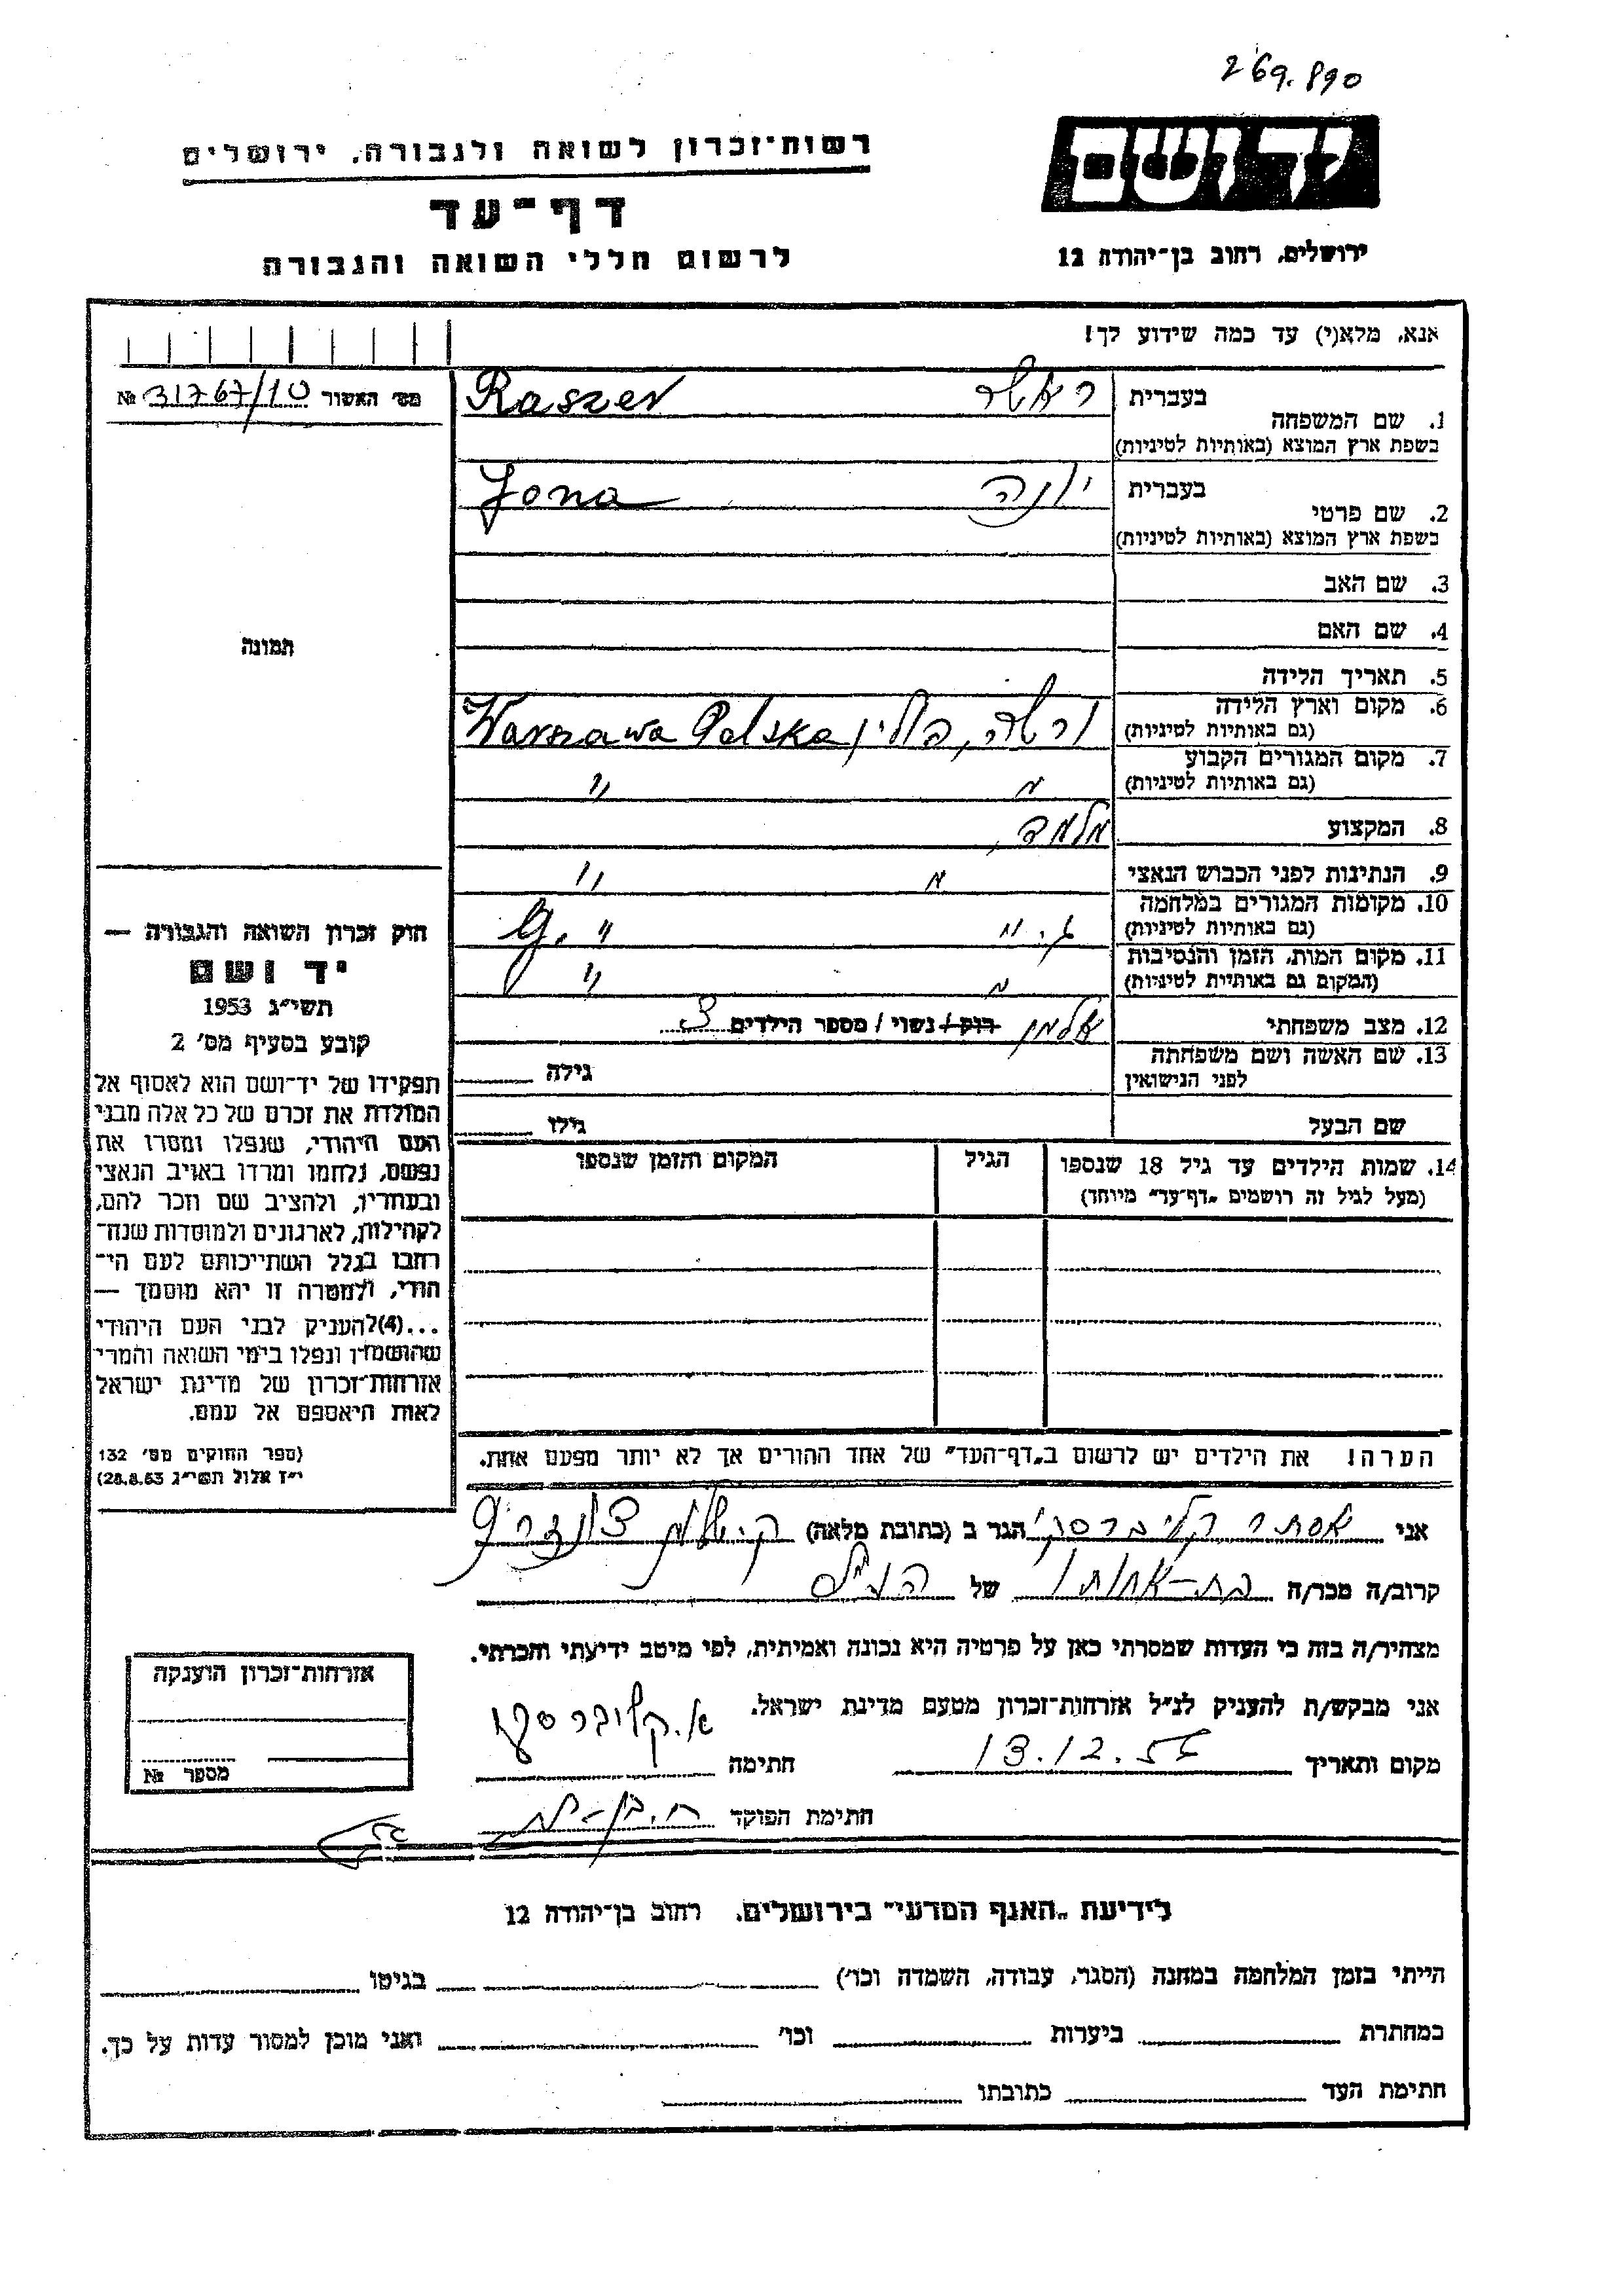 269.890
יד ושם
רשות־זכרון לשואה ולגבורה, ירושלים
דף־עד
לרשום חללי השואה והגבורה
ירושלים, רחוב בן־יהודה 12
אנא, מלא(י) עד כמה שידוע לך!
מס׳ האשור № 31767/10
1. שם המשפחה בעברית ראשר Raszer
בשפת ארץ המוצא (באותיות לטיניות)
2. שם פרטי בעברית יונה Jona
בשפת ארץ המוצא (באותיות לטיניות)
3. שם האב
4. שם האם
תמונה
5. תאריך הלידה
6. מקום וארץ הלידה ורשה, פולין Warszawa Polska
(גם באותיות לטיניות)
7. מקום המגורים הקבוע " "
(גם באותיות לטיניות)
8. המקצוע מלמד
9. הנתינות לפני הכבוש הנאצי " "
10. מקומות המגורים במלחמה ג. " " G.
(גם באותיות לטיניות)
11. מקום המות, הזמן והנסיבות " "
(המקום גם באותיות לטיניות)
12. מצב משפחתי אלמן רוק / נשוי / מספר הילדים 3
13. שם האשה ושם משפחתה גילה
לפני הנישואין
שם הבעל גילו
14. שמות הילדים עד גיל 18 שנספו הגיל המקום והזמן שנספו
(מעל לגיל זה רושמים „דף־עד” מיוחד)
חוק זכרון השואה והגבורה —
יד ושם
תשי״ג 1953
קובע בסעיף מס׳ 2
תפקידו של יד־ושם הוא לאסוף אל
המולדת את זכרם של כל אלה מבני
העם היהודי, שנפלו ומסרו את
נפשם, נלחמו ומרדו באויב הנאצי
ובעוזריו, ולהציב שם וזכר להם,
לקהילות, לארגונים ולמוסדות שנח־
רבו בגלל השתייכותם לעם הי־
הודי, ולמטרה זו יהא מוסמך —
...(4) להעניק לבני העם היהודי
שהושמדו ונפלו בימי השואה והמרי
אזרחות־זכרון של מדינת ישראל
לאות היאספם אל עמם.
(ספר החוקים מס׳ 132
י״ז אלול תשי״ג 28.8.53)
הערה! את הילדים יש לרשום ב„דף־העד” של אחד ההורים אך לא יותר מפעם אחת.
אני אסתר קליברסקי הגר ב (כתובת מלאה) ק.
קרוב/ה מכר/ה בת-אחותו של הנ״ל
מצהיר/ה בזה כי העדות שמסרתי כאן על פרטיה היא נכונה ואמיתית, לפי מיטב ידיעתי והכרתי.
אני מבקש/ת להעניק לנ״ל אזרחות־זכרון מטעם מדינת ישראל.
מקום ותאריך 13.12.56 חתימה א. קליברסקי
חתימת הפוקד
אזרחות־זכרון הוענקה
מספר №
לידיעת „האגף המדעי” בירושלים, רחוב בן־יהודה 12
הייתי בזמן המלחמה במחנה (הסגר, עבודה, השמדה וכו׳) בגיטו
במחתרת ביערות וכו׳ ואני מוכן למסור עדות על כך.
חתימת העד כתובתו